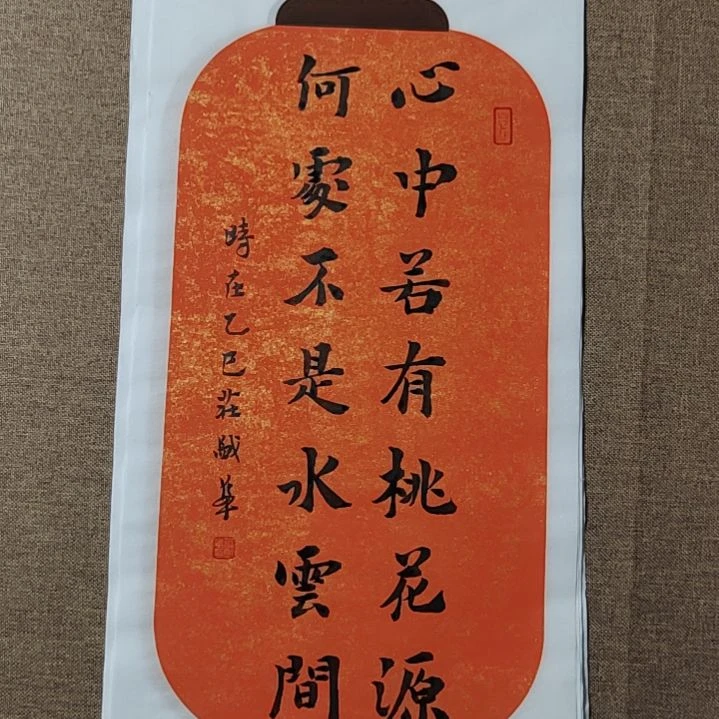 心中若有桃花源
何處不是水雲間
時在乙巳莊賦華